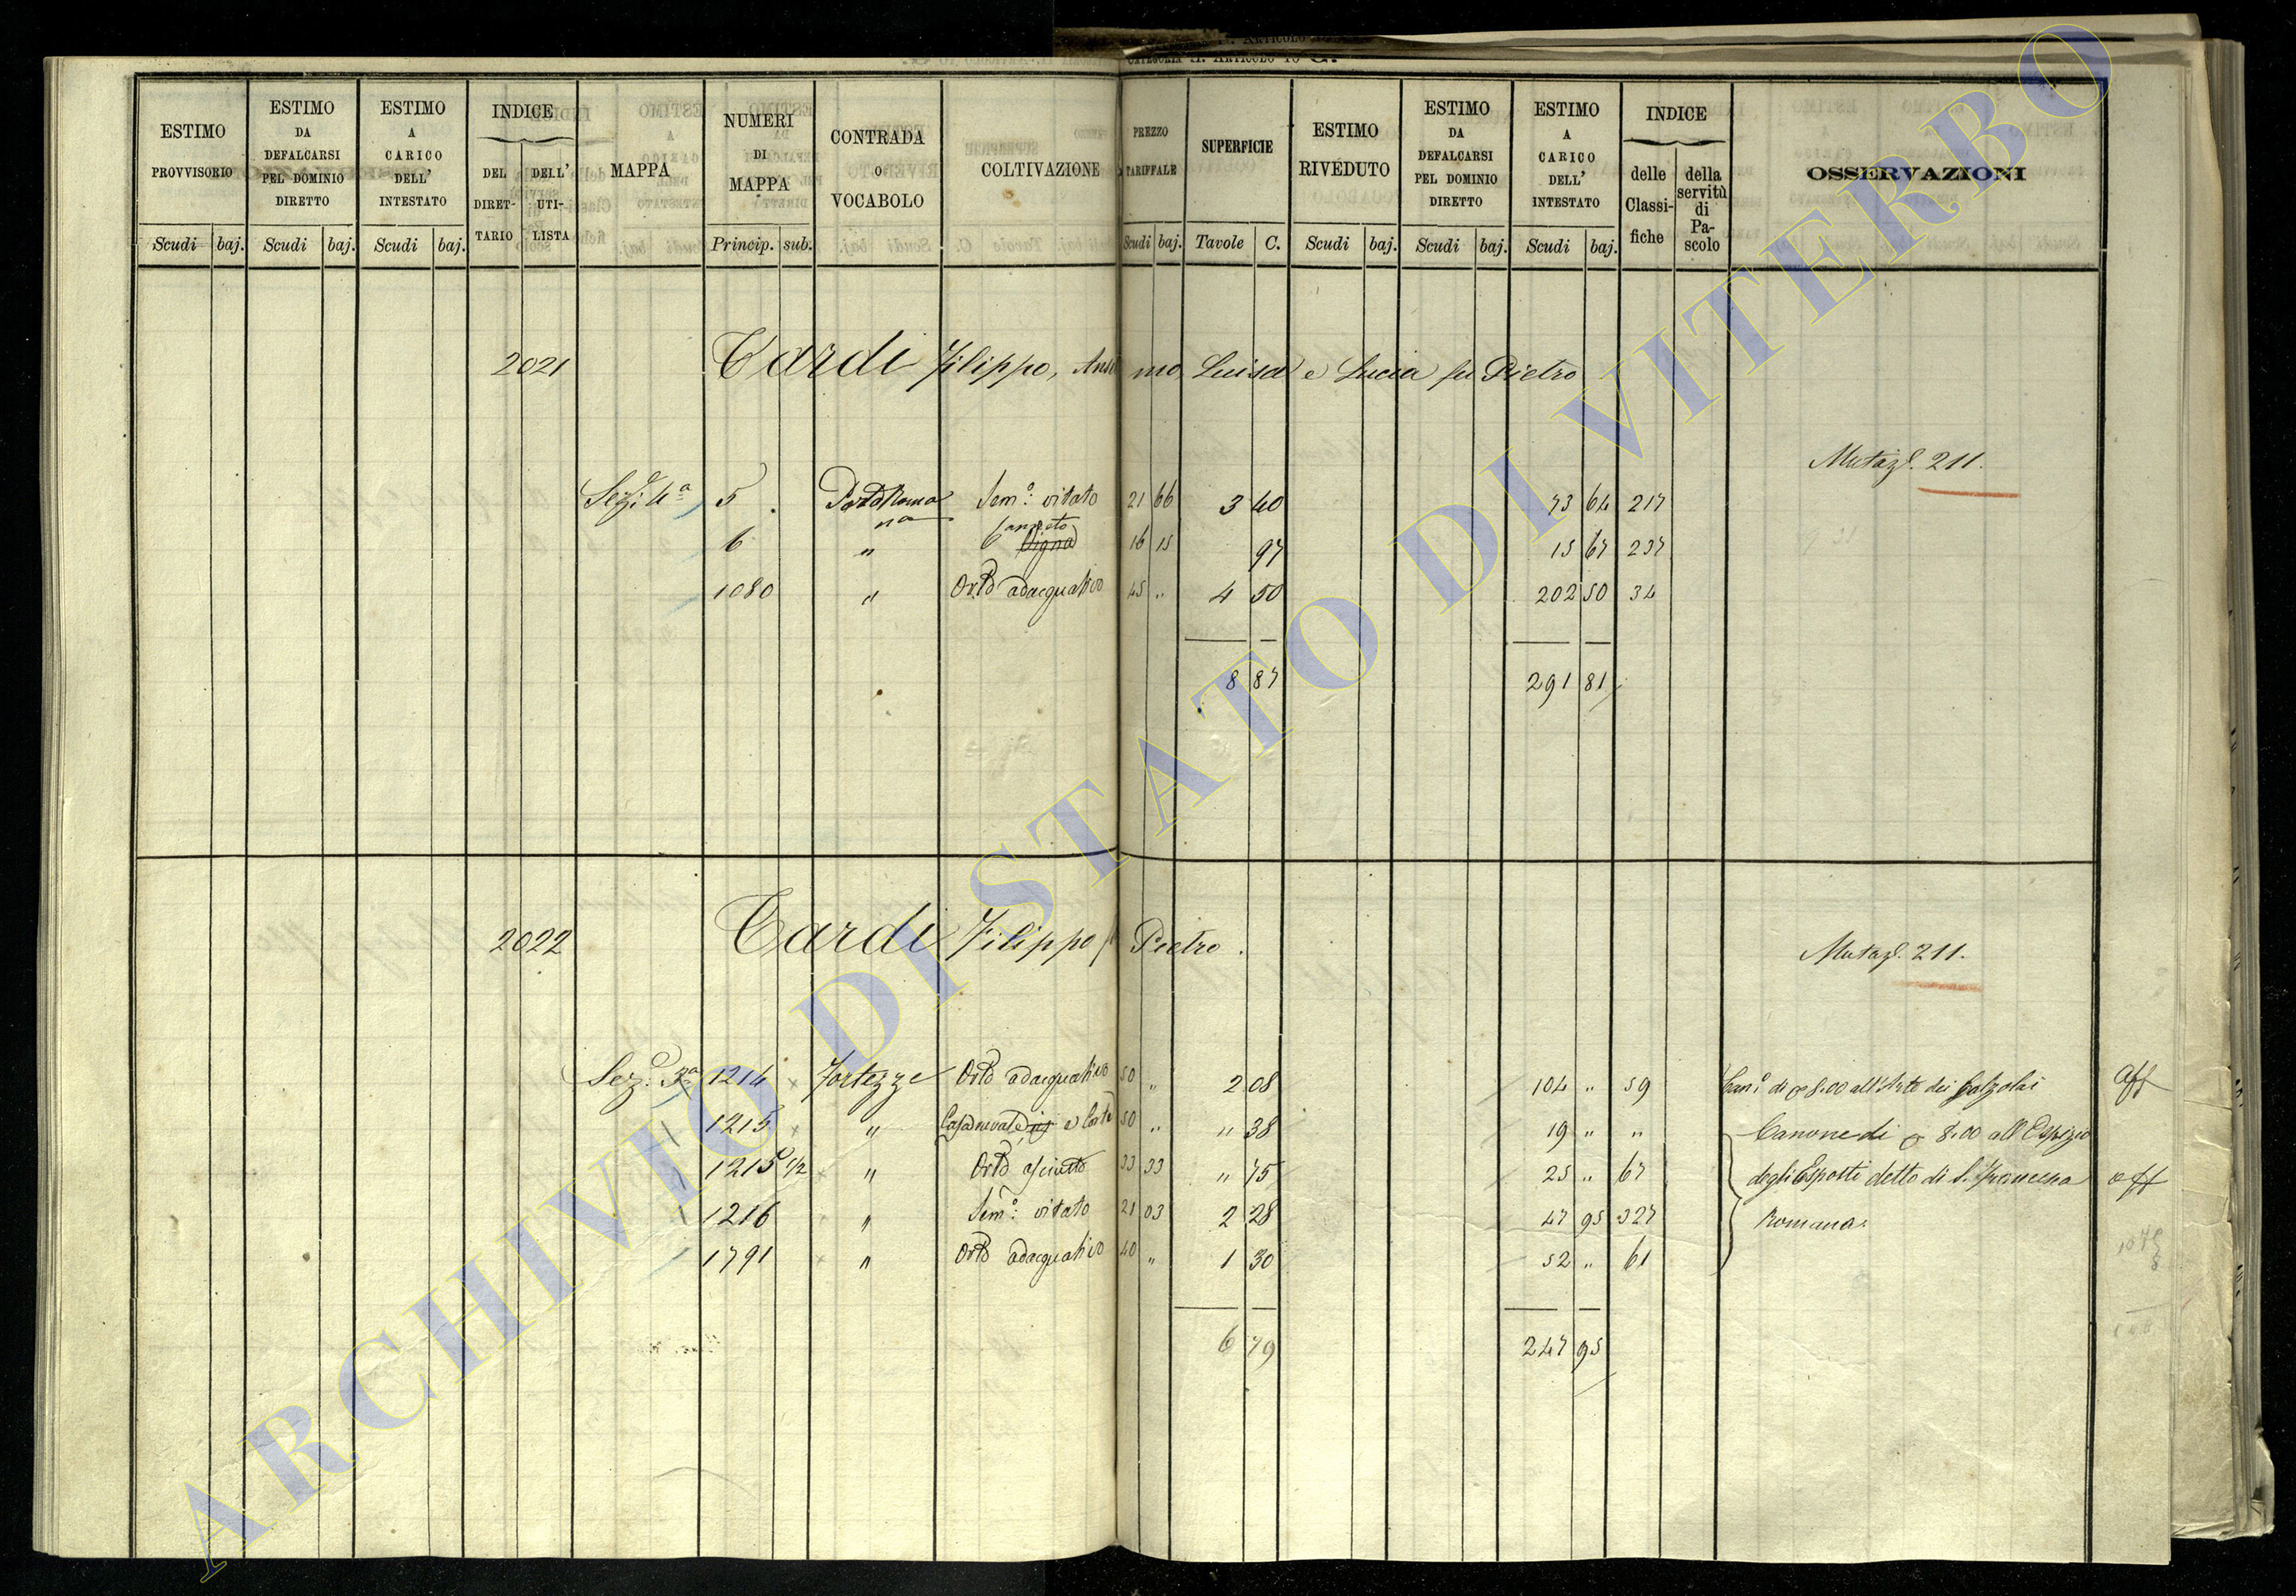 CATEGORIA II. ARTICOLO 10 C.
ESTIMO PROVVISORIO Scudi baj.
ESTIMO DA DEFALCARSI PEL DOMINIO DIRETTO Scudi baj.
ESTIMO A CARICO DELL' INTESTATO Scudi baj.
INDICE DEL DIRETTARIO DELL' UTILISTA
MAPPA
NUMERI DI MAPPA Princip. sub.
CONTRADA O VOCABOLO
COLTIVAZIONE
PREZZO TARIFFALE Scudi baj.
SUPERFICIE Tavole C.
ESTIMO RIVEDUTO Scudi baj.
ESTIMO DA DEFALCARSI PEL DOMINIO DIRETTO Scudi baj.
ESTIMO A CARICO DELL' INTESTATO Scudi baj.
INDICE delle Classifiche della servitù di Pascolo
OSSERVAZIONI
2021 Tardi Filippo, Luisa e Lucia fu Pietro
Mutaz.e 211.
Sez.e 4a 5 Sem.o vitato 21 66 3 40 73 64 217
6 " Canneto Vigna 16 15 97 15 67 237
1080 " Orto adacquativo 45 " 4 50 202 50 34
8 87 291 81
2022 Tardi Filippo Pietro.
Mutaz.e 211.
Sez.e 3a 1214 Fortezze Orto adacquativo 50 " 2 08 104 " 59 Can.e di 8.00 all'Arte dei Calzolai aff
1215 " e Corte 50 " " 38 19 " " Canone di 8.00 all'Ospizio
1215 1/2 " Orto asciutto 33 33 " 75 25 " 67 degli Esposti detto di S. Francesca aff
1216 " Sem.o vitato 21 03 2 28 47 95 327 Romana.
1791 " Orto adacquativo 40 " 1 30 52 " 61
6 79 247 95
ARCHIVIO DI STATO DI VITERBO